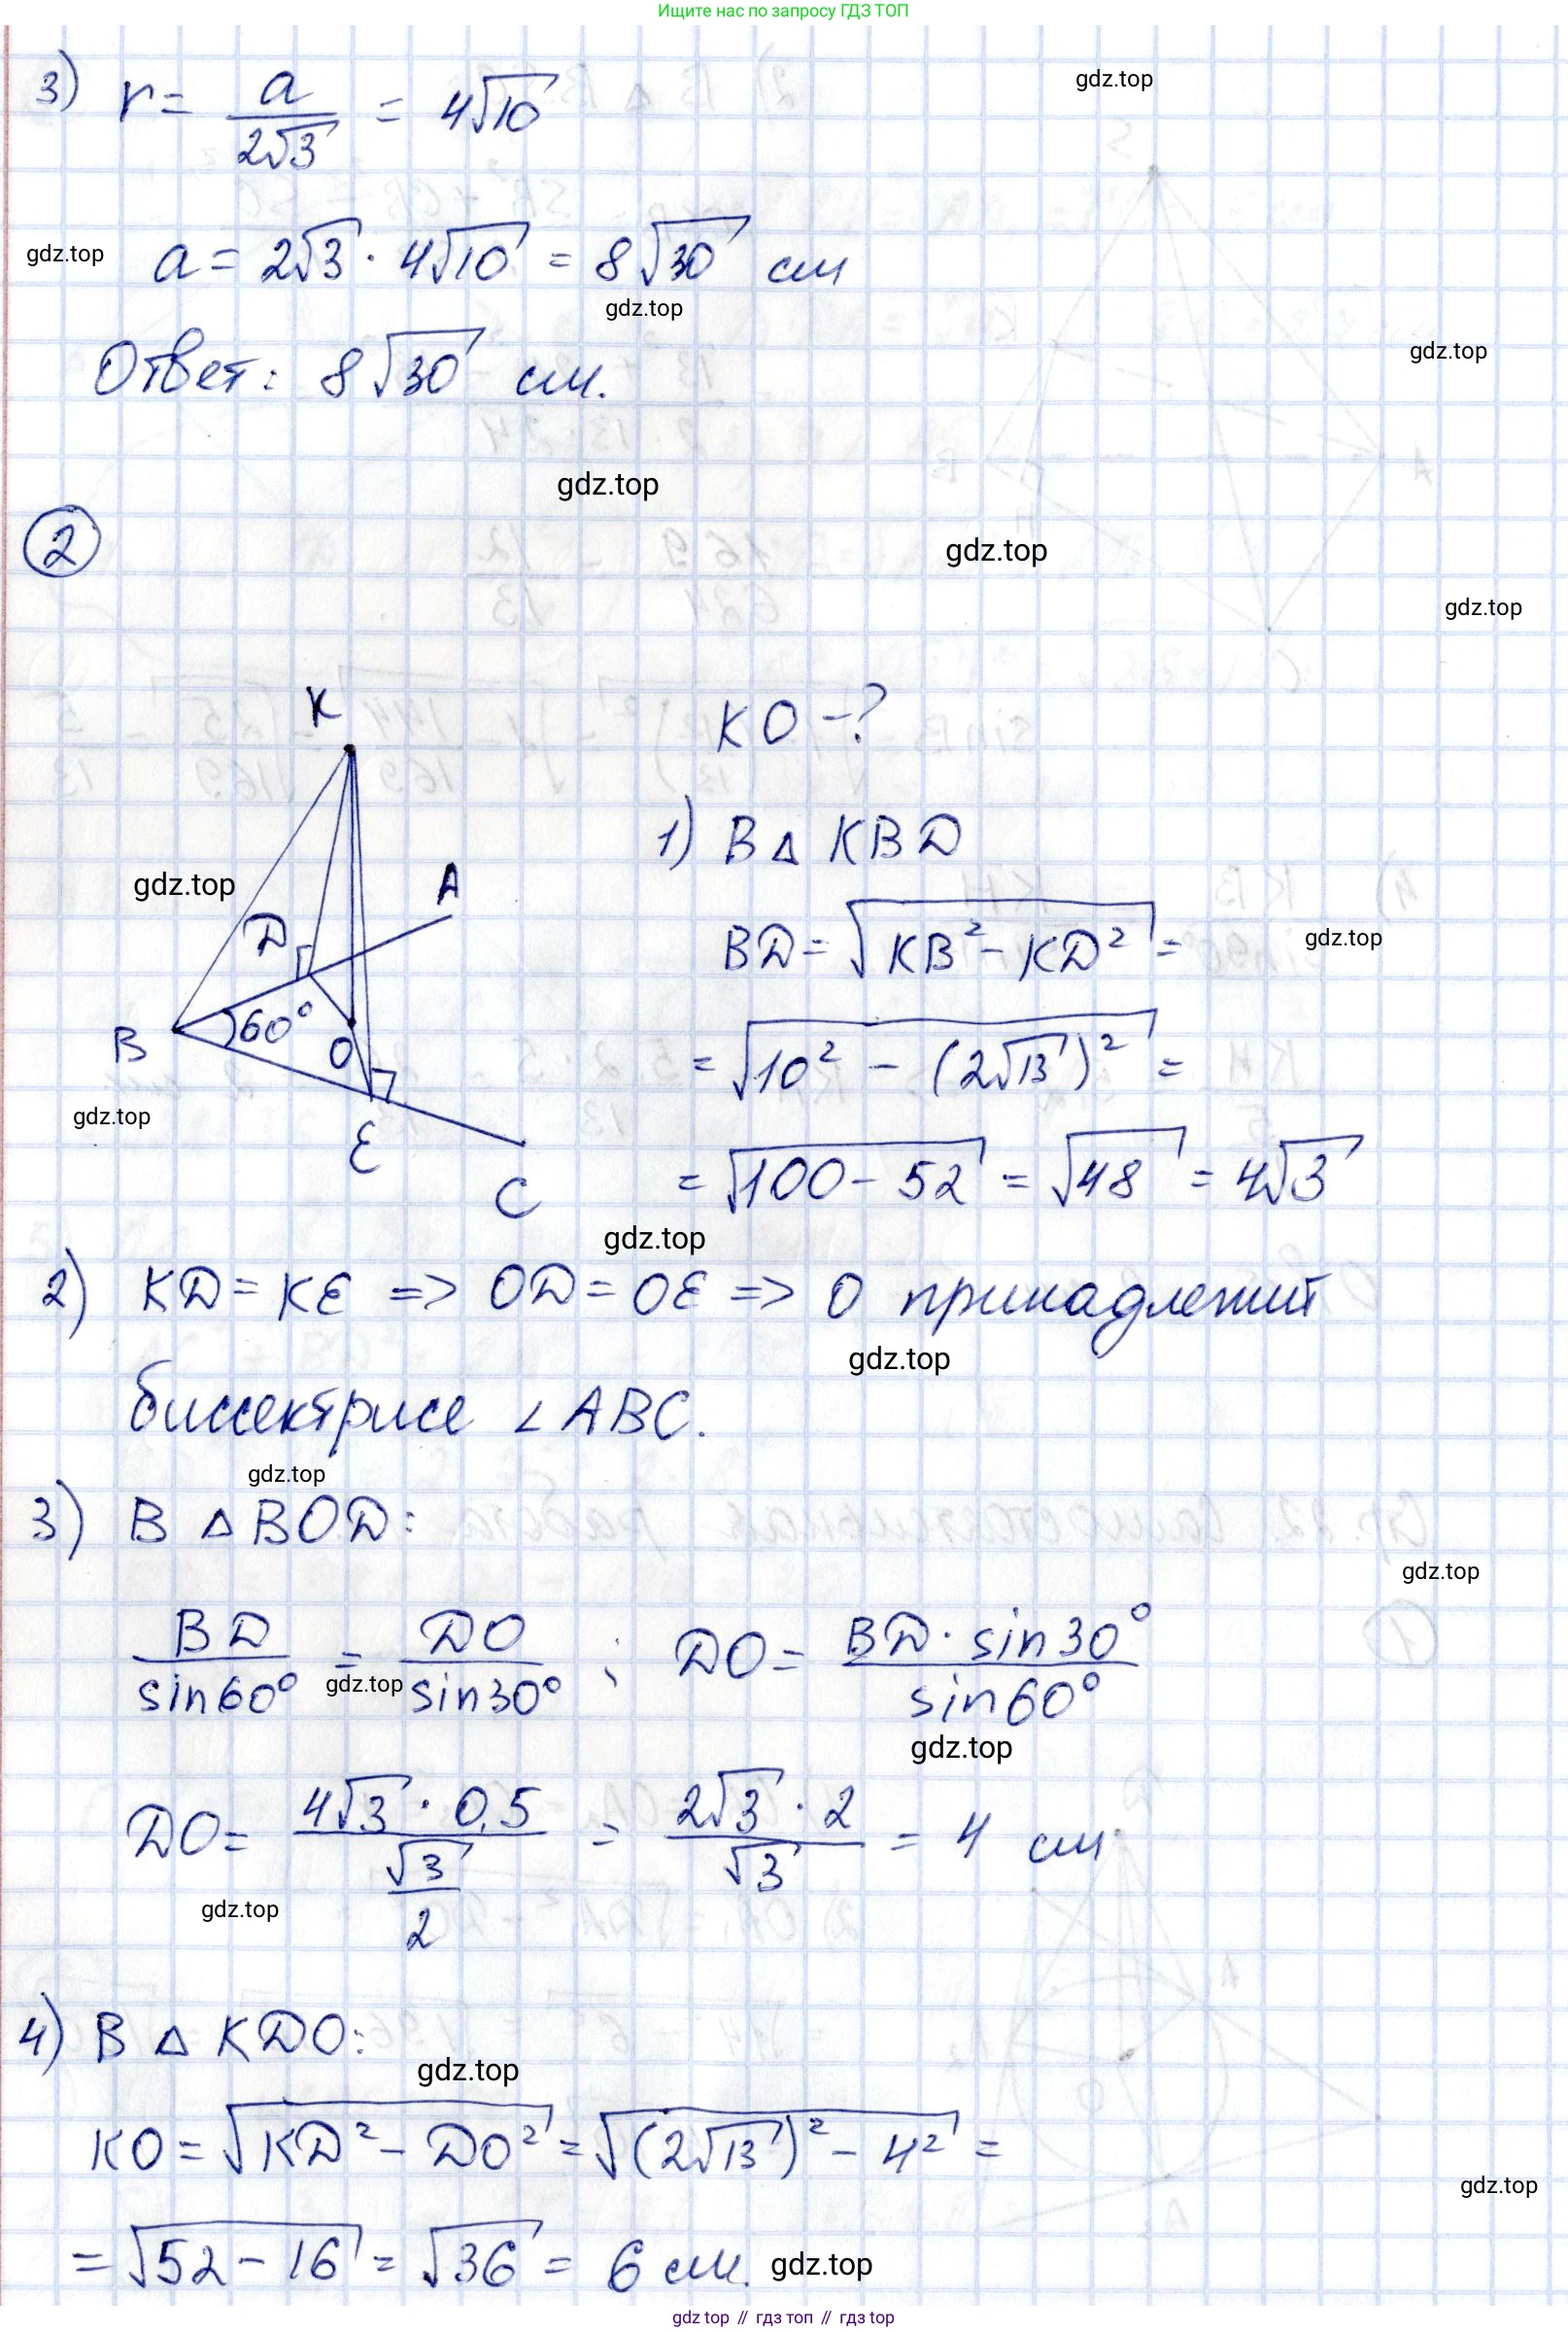 Ищите нас по запросу ГДЗ ТОП
3) r = a/(2√3) = 4√10
gdz.top
a = 2√3 · 4√10 = 8√30 см
gdz.top
gdz.top
Ответ: 8√30 см.
gdz.top
gdz.top
2
gdz.top
gdz.top
K
KO - ?
1) В △ KBD
gdz.top
A
D
BD = √(KB² - KD²) =
gdz.top
B
60°
O
= √(10² - (2√13)²) =
gdz.top
E
C
= √(100 - 52) = √48 = 4√3
gdz.top
2) KD = KE => OD = OE => O принадлежит
gdz.top
биссектрисе ∠ABC.
gdz.top
3) В △BOD:
gdz.top
BD/sin60° = DO/sin30° ; DO = BD · sin30°/sin60°
gdz.top
gdz.top
DO = (4√3 · 0,5)/(√3/2) = (2√3 · 2)/√3 = 4 см
gdz.top
4) В △ KDO:
gdz.top
KO = √(KD² - DO²) = √((2√13)² - 4²) =
gdz.top
= √(52 - 16) = √36 = 6 см.
gdz.top
gdz top // гдз топ // гдз top